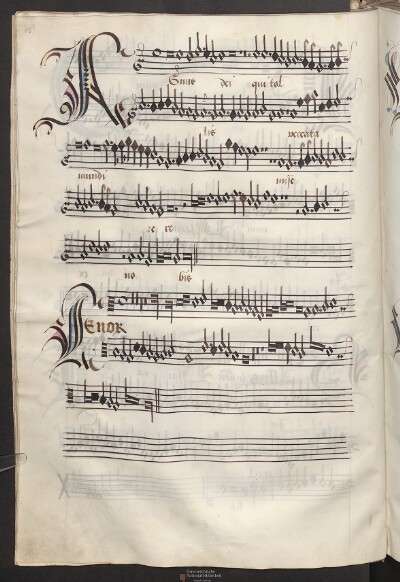 Agnus dei qui tol
lis peccata
mundi mise
re re
no bis
Tenor